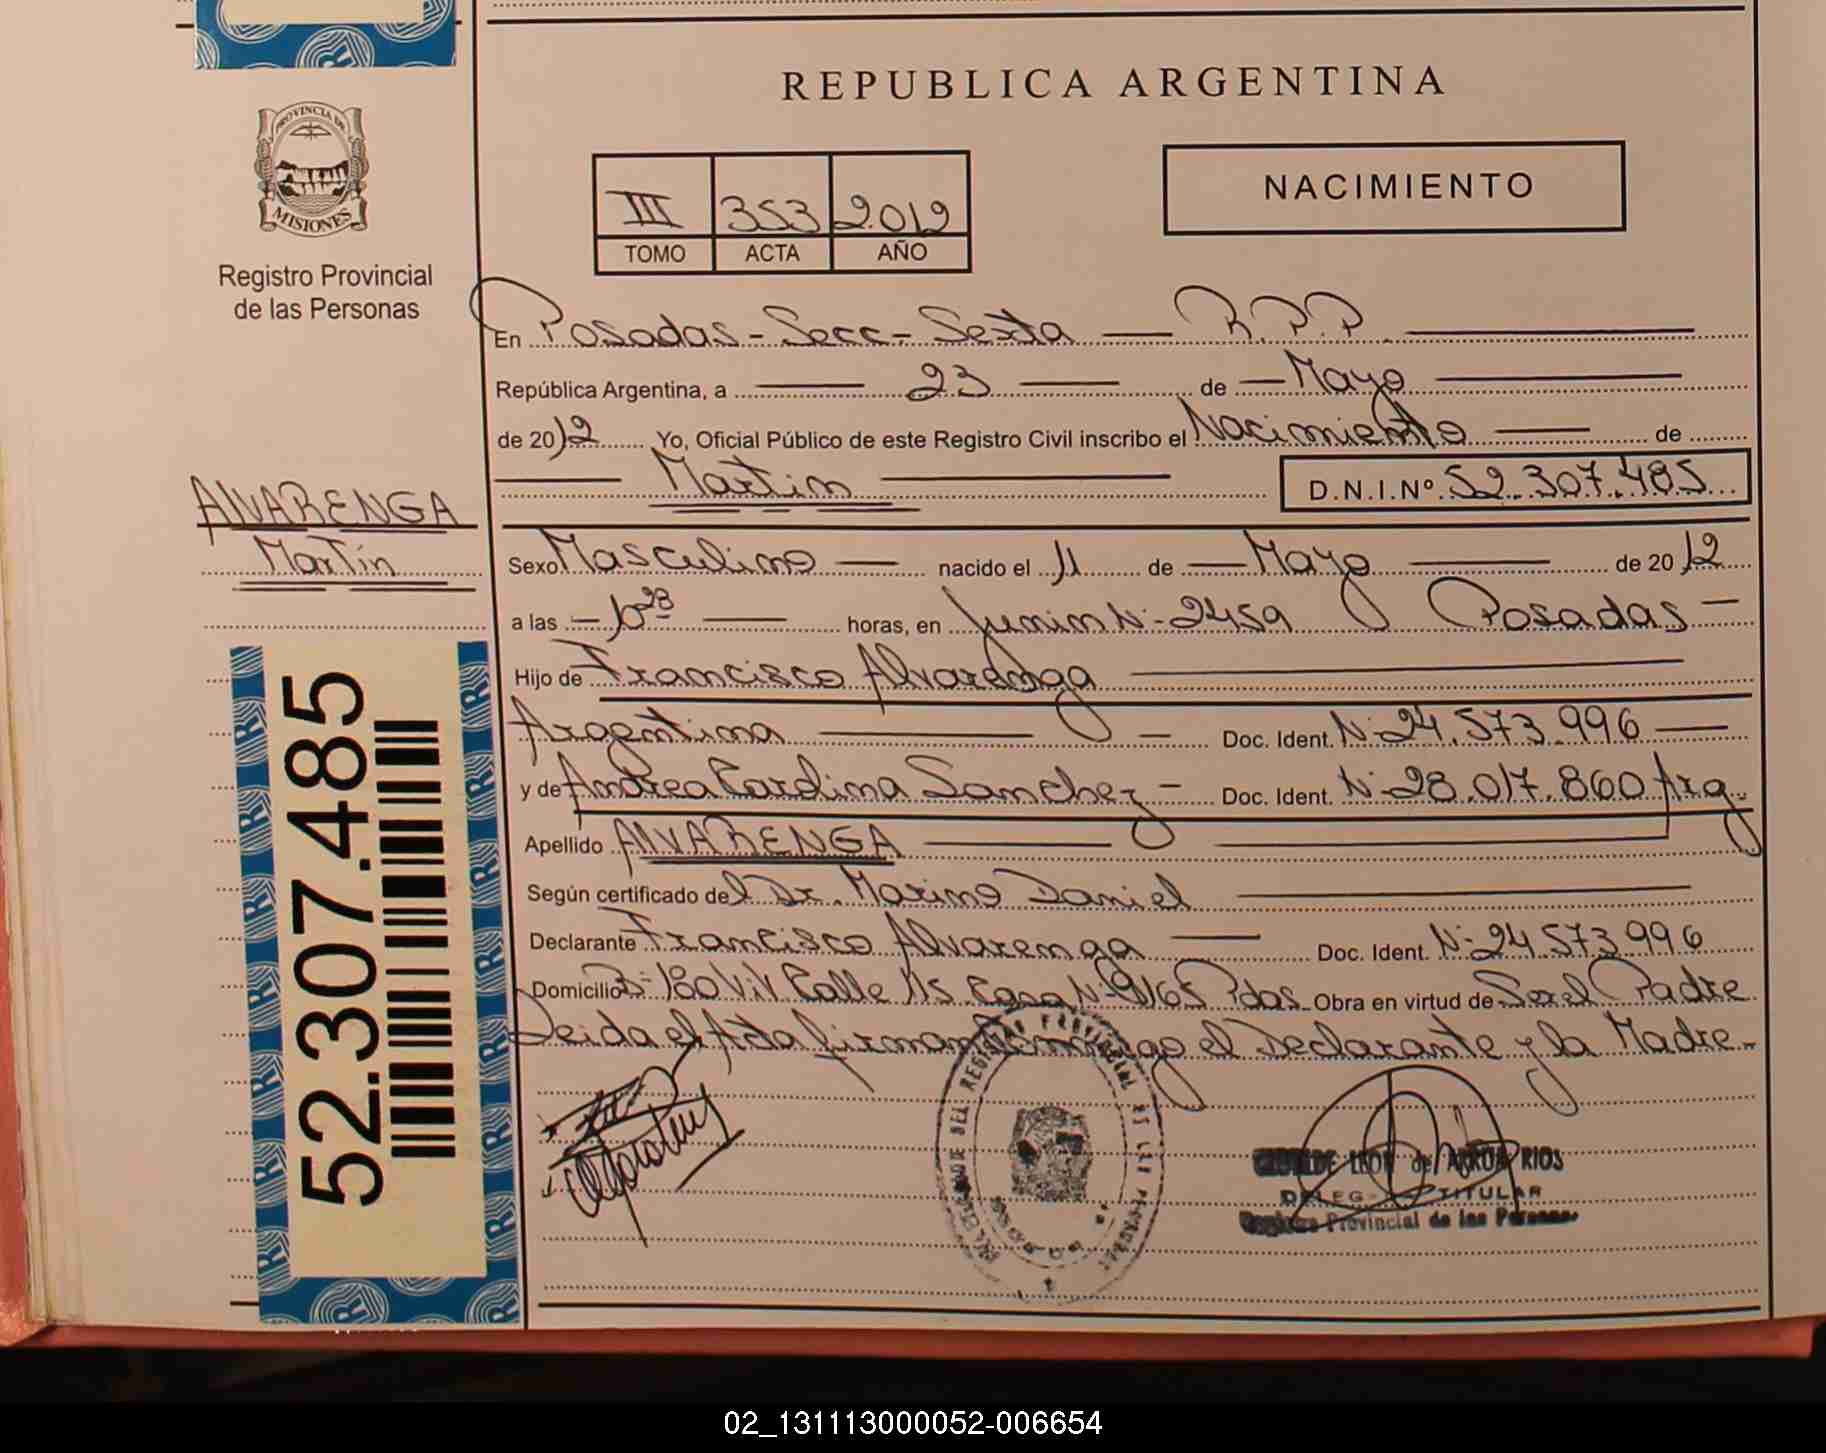 REPUBLICA ARGENTINA
PROVINCIA DE
MISIONES
Registro Provincial
de las Personas
III 353 2.012
TOMO ACTA AÑO
NACIMIENTO
En Posadas - Secc - Sexta — R.P.P.
República Argentina, a — 23 — de — Mayo —
de 2012 Yo, Oficial Público de este Registro Civil inscribo el Nacimiento — de
— Martin — D.N.I.Nº. 52.307.485
ALVARENGA
Martín
Sexo Masculino — nacido el 11 de — Mayo — de 2012
a las — 10 28 — horas, en Junin N:- 2459 Posadas —
Hijo de Francisco Alvarenga —
Argentina — Doc. Ident. N:- 24.573.996 —
y de Andrea Carolina Sanchez — Doc. Ident. N:- 28.017.860 Arg.
Apellido ALVARENGA —
Según certificado del Dr. Marino Daniel —
Declarante Francisco Alvarenga — Doc. Ident. N:- 24.573.996
Domicilio B:- 180 Viv Calle 115 Casa N:- 9165 Pdas. Obra en virtud de Ser el Padre
Leida el Acta firman conmigo el Declarante y la Madre.-
52.307.485
LEON de ARRUA RIOS
TITULAR
Registro Provincial de las Personas
02_131113000052-006654